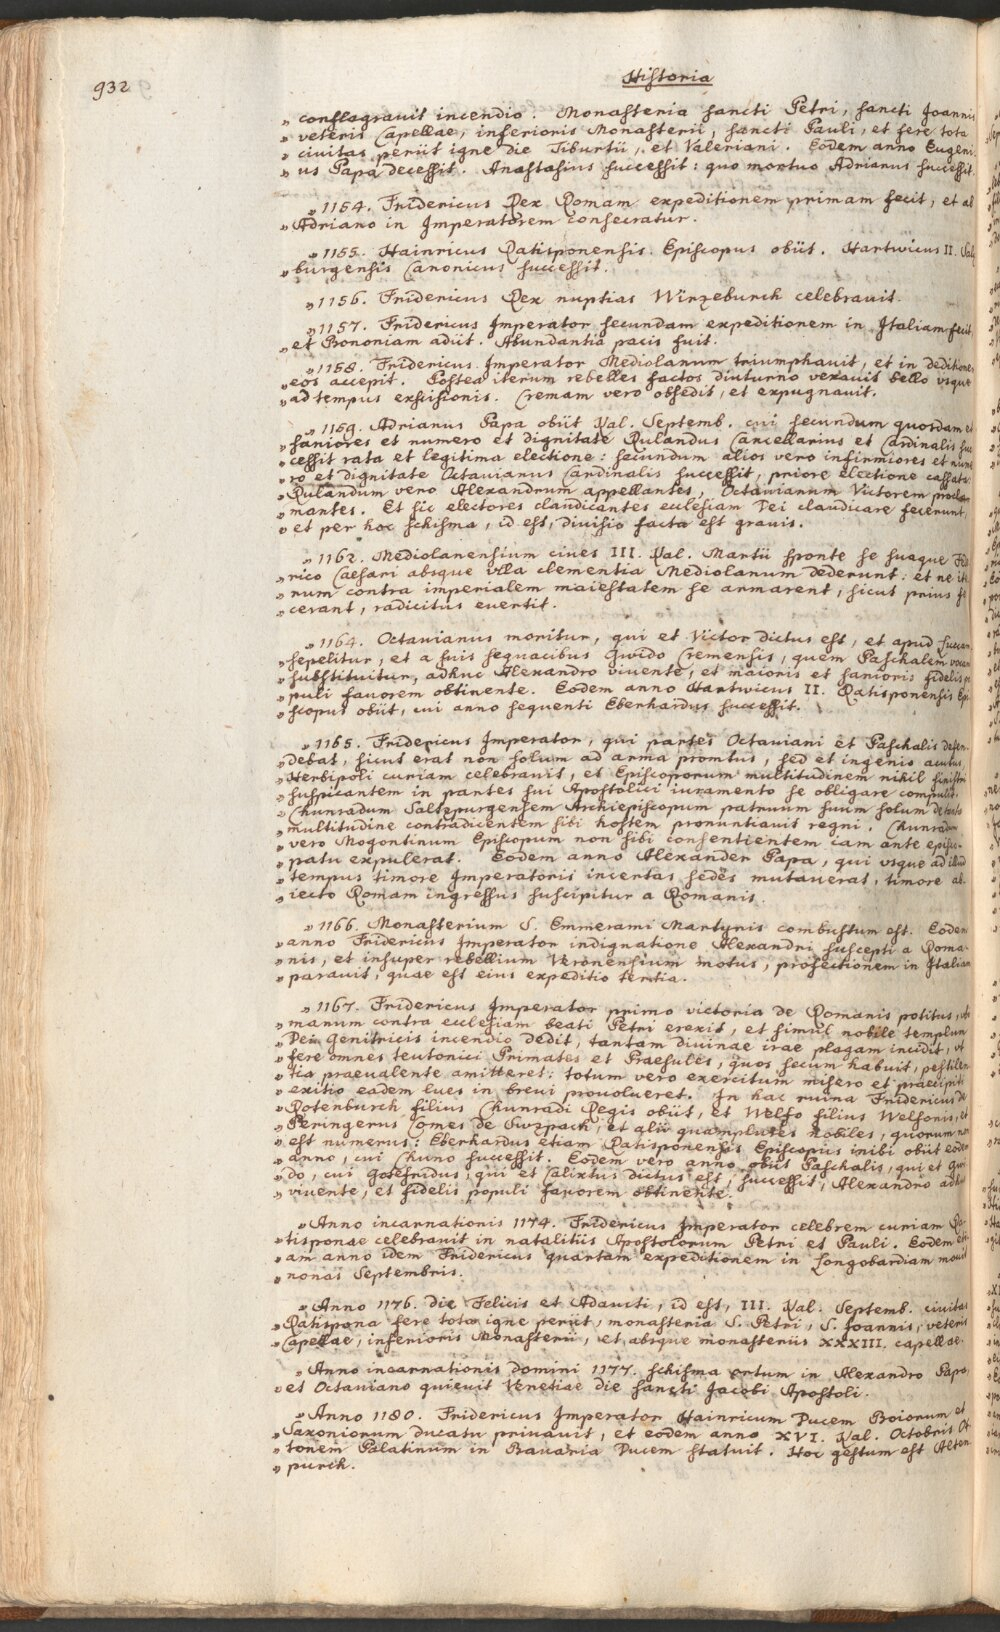 932
Historia
„ conflagravit incendio. Monasteria sancti Petri, sancti Joannis
„ veteris Capellae, inferioris Monasterii, sancti Pauli, et fere tota
„ civitas periit igne die Tiburtii, et Valeriani. Eodem anno Eugeni-
„ us Papa decessit. Anastasius successit: quo mortuo Adrianus successit.
„ 1154. Fridericus Rex Romam expeditionem primam fecit, et ab
„ Adriano in Imperatorem consecratur.
„ 1155. Hainricus Ratisponensis Episcopus obiit. Hartwicus II. Salz
„ burgensis Canonicus successit.
„ 1156. Fridericus Rex nuptias Wirzeburch celebravit.
„ 1157. Fridericus Imperator secundam expeditionem in Italiam fecit
„ et Bononiam adiit. Abundantia pacis fuit.
„ 1158. Fridericus Imperator Mediolanum triumphauit, et in deditionem
„ eos accepit. Postea iterum rebelles factos diuturno vexauit bello vsque
„ ad tempus exscisionis. Cremam vero obsedit, et expugnauit.
„ 1159. Adrianus Papa obiit Kal. Septemb. cui secundum quosdam et
„ saniores et numero et dignitate Rulandus Cancellarius et Cardinalis suc
„ cessit rata et legitima electione: secundum alios vero infirmiores et nume
„ ro et dignitate Octavianus Cardinalis successit, priore electione cassata:
„ Rulandum vero Alexandrum appellantes, Octavianum Victorem procla
„ mantes. Et sic electores claudicantes ecclesiam Dei claudicare fecerunt,
„ et per hoc schisma, id est, divisio facta est gravis.
„ 1162. Mediolanensium ciues III. Kal. Martii sponte se suaque Fede
„ rico Caesari absque vlla clementia Mediolanum dederunt: et ne ite
„ rum contra imperialem maiestatem se armarent, sicut prius fe
„ cerant, radicitus euertit.
„ 1164. Octauianus moritur, qui et Victor dictus est, et apud Luccam
„ sepelitur, et a suis sequacibus Gwido Cremensis, quem Paschalem vocant
„ substituitur, adhuc Alexandro viuente, et maioris et sanioris fidelis po
„ puli fauorem obtinente. Eodem anno Hartwicus II. Ratisponensis Epi
„ scopus obiit, cui anno sequenti Eberhardus successit.
„ 1165. Fridericus Imperator, qui partes Octauiani et Paschalis defen-
„ debat, sicut erat non solum ad arma promtus, sed et ingenio acutus,
„ Herbipoli curiam celebrauit, et Episcoporum multitudinem nihil sinistri
„ suspicantem in partes sui Apostolici iuramento se obligare compulit.
„ Chunradum Saltzpurgensem Archiepiscopum patruum suum solum de tanta
„ multitudine contradicentem sibi hostem pronuntiauit regni. Chunradum
„ vero Mogontinum Episcopum non sibi consentientem iam ante episco-
„ patu expulerat. Eodem anno Alexander Papa, qui vsque ad illud
„ tempus timore Imperatoris incertas sedes mutauerat, timore ab-
„ iecto Romam ingressus suscipitur a Romanis.
„ 1166. Monasterium S. Emmerami Martyris combustum est. Eodem
„ anno Fridericus Imperator indignatione Alexandri suscepti a Roma-
„ nis, et insuper rebellium Veronensium motus, profectionem in Italiam
„ parauit, quae est eius expeditio tertia.
„ 1167. Fridericus Imperator primo victoria de Romanis potitus, vbi
„ manum contra ecclesiam beati Petri erexit, et simul nobile templum
„ Dei Genitricis incendio dedit, tantam divinae irae plagam incidit, vt
„ fere omnes teutonici Primates et Praesules, quos secum habuit, pestilen
„ tia praeualente amitteret: totum vero exercitum misero et praecipiti
„ exitio eadem lues in breui prouolueret. In hac ruina Fridericus de
„ Rotenburch filius Chunradi Regis obiit, et Welfo filius Welfonis, et
„ Peringerus Comes de Sulzpach, et alii quamplures nobiles, quorum non
„ est numerus: Eberhardus etiam Ratisponensis Episcopus inibi obiit eodem
„ anno, cui Chuno successit. Eodem vero anno obiit Paschalis, qui et Gwi
„ do, cui Gotefridus, qui et Calixtus dictus est, successit, Alexandro adhuc
„ viuente, et fidelis populi fauorem obtinente.
„ Anno incarnationis 1174. Fridericus Imperator celebrem curiam Ra-
„ tisponae celebrauit in natalitiis Apostolorum Petri et Pauli. Eodem eti-
„ am anno idem Fridericus quartam expeditionem in Longobardiam mouit
„ nonas Septembris.
„ Anno 1176. die Felicis et Adaucti, id est, III. Kal. Septemb. ciuitas
„ Ratispona fere tota igne periit, monasteria S. Petri, S. Joannis, veteris
„ Capellae, inferioris Monasterii, et absque monasteriis XXXIII. capellae.
„ Anno incarnationis domini 1177. schisma ortum in Alexandro Papa,
„ et Octauiano quieuit Venetiae die sancti Jacobi Apostoli.
„ Anno 1180. Fridericus Imperator Hainricum Ducem Boiorum et
„ Saxoniorum ducatu priuauit, et eodem anno XVI. Kal. Octobris Ot
„ tonem Palatinum in Bauaria Ducem statuit. Hoc gestum est Alten
„ purch.